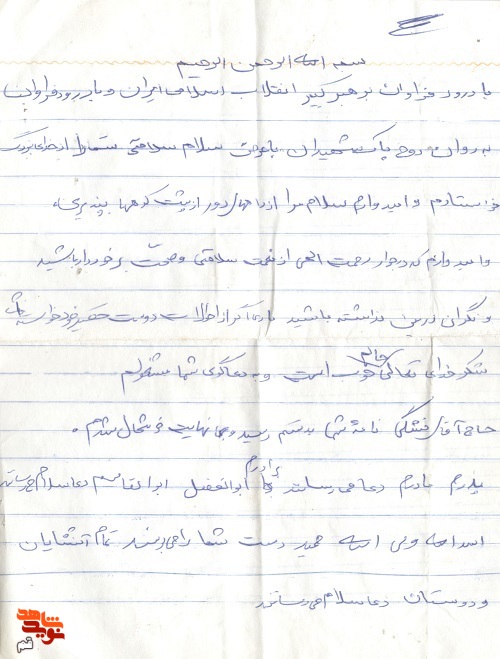 بسمه الله الرحمن الرحیم
با درود فراوان بر رهبر کبیر انقلاب اسلامی ایران و با درود فراوان
به روان روح پاک شهیدان با عرض سلام سلامتی شما را از خدای بزرگ
خواستارم و امیدوارم سلام مرا از راه های دور از پشت کوهها بپذیری،
و امیدوارم که در جوار رحمت الهی از نعمت سلامتی و صحت برخوردار باشید
و نگرانی نداشته باشید باری اگر از احوالات دوست حقیر خود خواسته باشی
شکر خدای تعالی حالم خوب است و به دعاگوی شما مشغولم
حاج آقای فشنگی نامه شما بدستم رسید و بی نهایت خوشحال شدم.
پدرم مادرم دعا می رسانند برادرم ابوالفضل ابوالقاسم دعا سلام می رسانند
اسدالله ولی الله حمید دست شما را می بوسند تمام آشنایان
و دوستان دعا سلام می رسانند
نوید شاهد